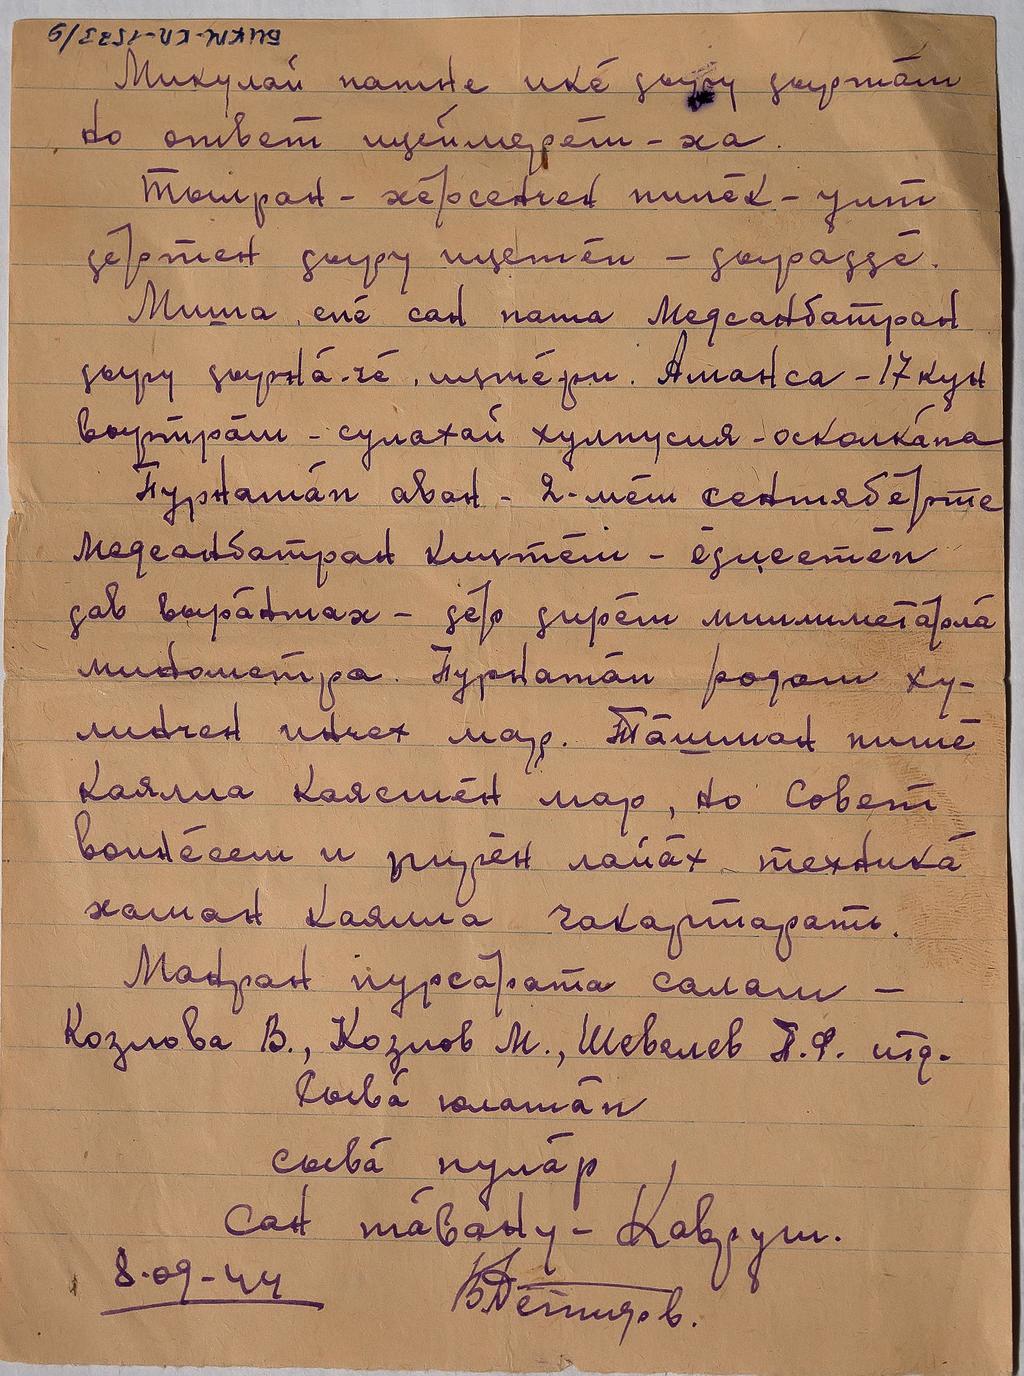 БИКМ-КП-1573/9
Микулай патне икĕ çыру çыртăм
но ответ илеймерĕм-ха.
Тылран - хĕрсенчен пилĕк-улт
çĕртен çыру илетĕп - çыраççĕ.
Миша, епĕ сан пата Медсанбатран
çыру çырнă-чĕ, илтĕри. Аманса - 17 кун
выртрăм - сулахай хулпуççи - осколкăпа
Пурнатăп аван - 2-мĕш сентябĕрте
медсанбатран килтĕм - ĕçлетĕп
çав вырăнтах - çĕр çирĕм миллиметăрлă
минометра. Пурнатăп родом Ху-
линчен инчех мар. Тăшман питĕ
каялла каясшăн мар, но Совет
воинĕсем и лайăх техникă
хаман каялла чакартарать.
Манран пурсăрата салам -
Козлова В., Козлов М., Шевелев П.Ф. итд.
Сывă юлатăп
сывă пулăр
Сан тăвану - Кавруш.
8-09-44